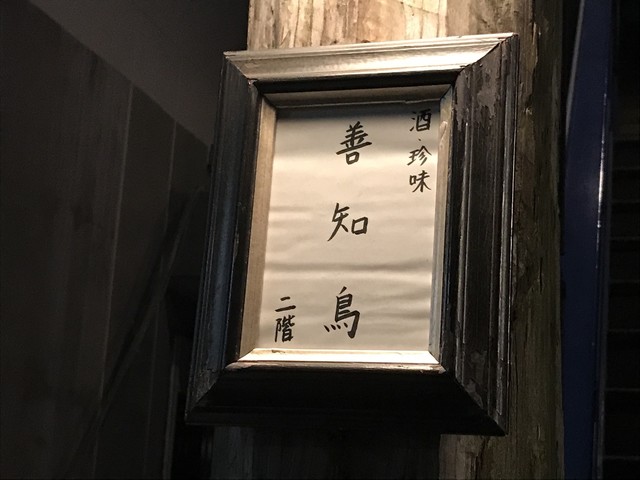 酒・珍味
善知鳥
二階